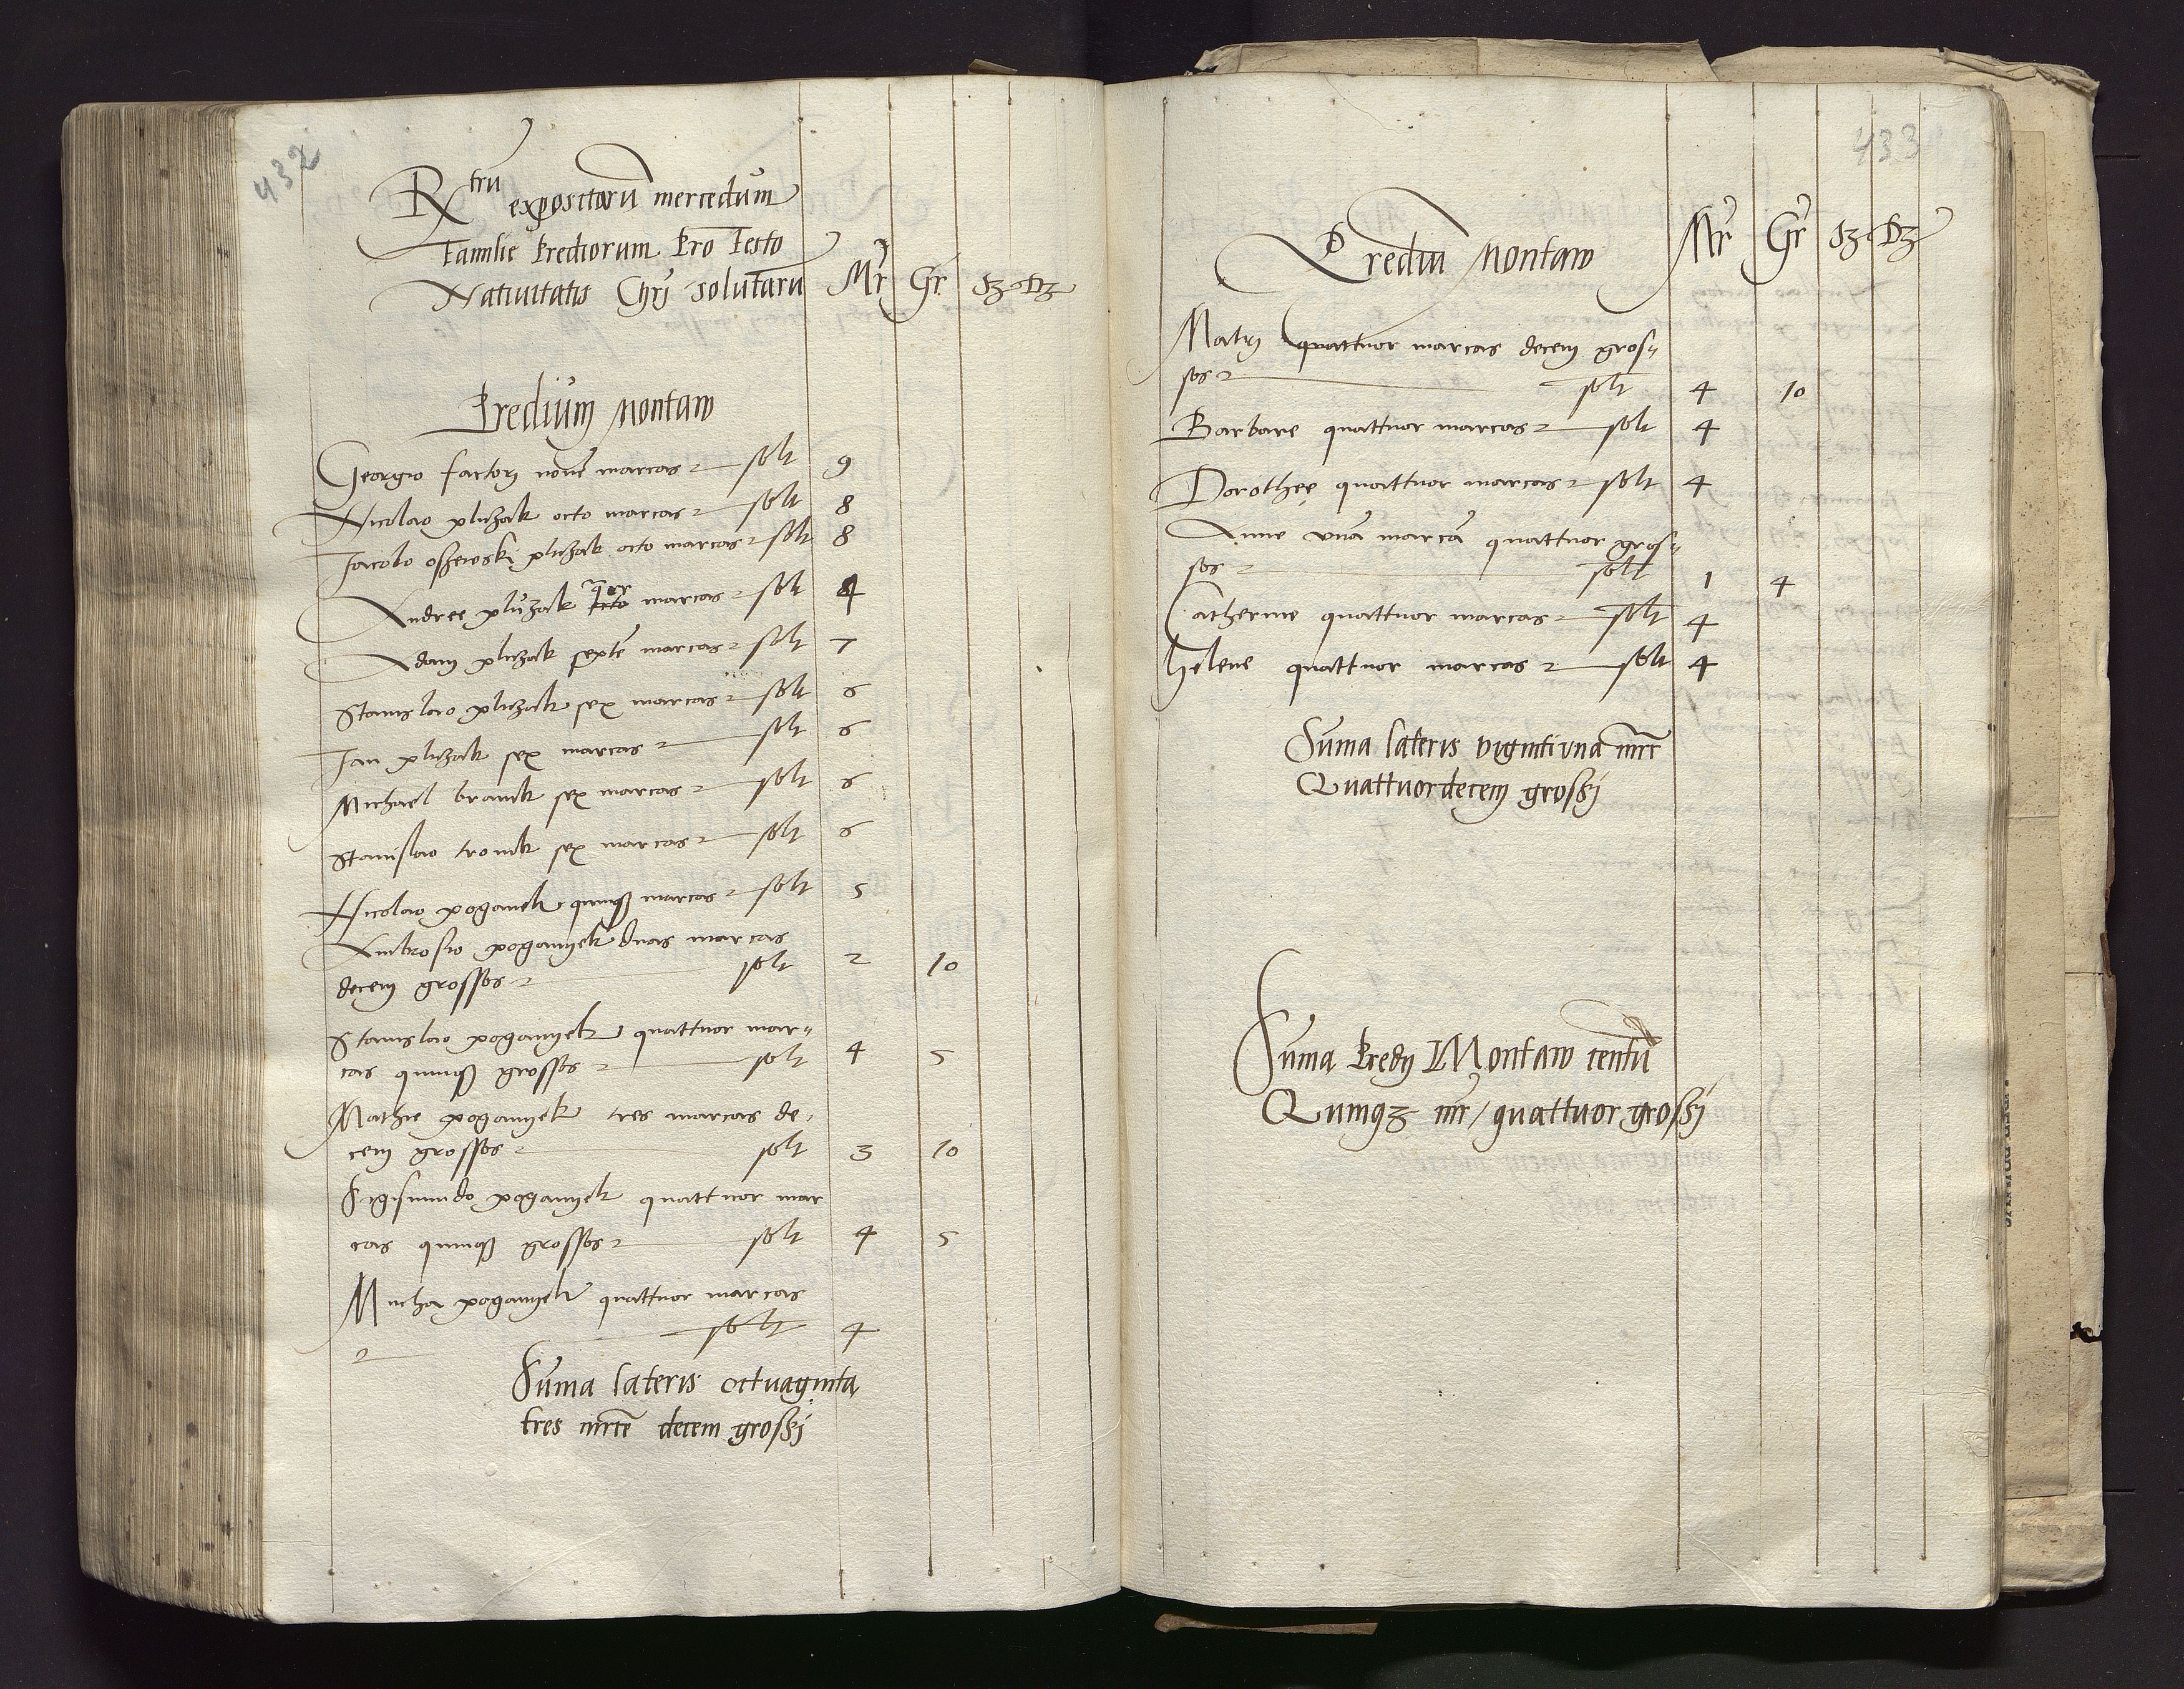 432
Rtru expositoru mercedum
Familie Prediorum Pro Festo
Nativitatis Chrj solutaru Mr Gr Sz Dz
Predium Montaw
Georgio factorj novē marcas solt 9
Nicolao pluzak octo marcas solt 8
Jacobo pluzak octo marcas solt 8
Andree pluzak qtor marcas solt 4
Adam pluzak septē marcas solt 7
Stanislao pluzak sex marcas solt 6
Jan pluzak sex marcas solt 6
Michael sex marcas solt 6
Stanislao sex marcas solt 6
Nicolao poganyek quinqz marcas solt 5
Ambrosio poganyek duas marcas
decem grossos solt 2 10
Stanislao poganyek quattuor mar„
cas quinqz grossos solt 4 5
Mathie poganyek tres marcas de,
cem grossos solt 3 10
Sigismundo poganyek quattuor mar
cas quinqz grossos solt 4 5
Mucha poganyek quattuor marcas
solt 4
Suma lateris octuaginta
tres mrce decem grossj
433
Prediu Montaw Mr Gr Sz Dz
Matrj quattuor marcas decem gros„
sos solt 4 10
Barbare quattuor marcas solt 4
Dorothee quattuor marcas solt 4
Anne unā marcā quattuor gros„
sos solt 1 4
Catherine quattuor marcas solt 4
helene quattuor marcas solt 4
Suma lateris viginti una mrc
Quattuordecem grossj
Suma Predij Montaw centū
Quinqz mr/ quattuor grossj